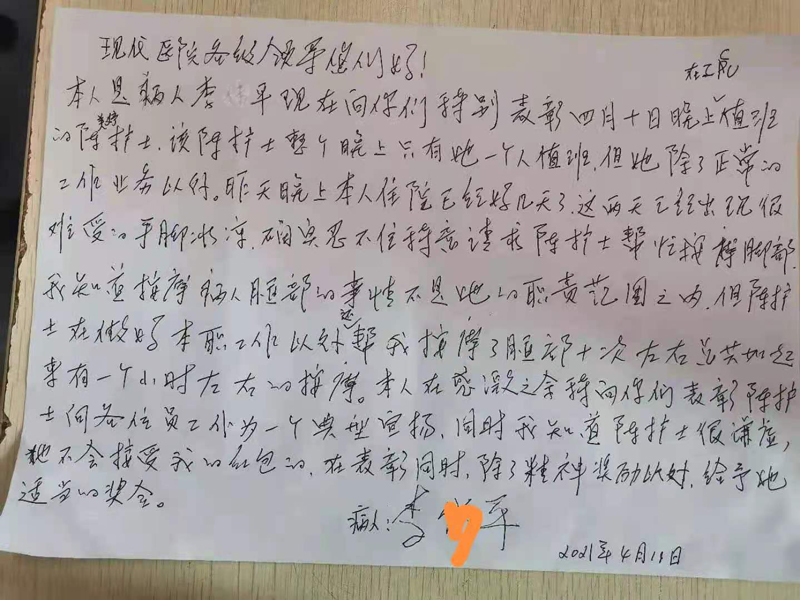 现代医院各级领导您们好!
在工会
本人是病人李 平现在向你们特别表彰四月十日晚上值班
的陈护士,该陈护士整个晚上只有她一个人值班,但她除了正常的
工作业务以外。昨天晚上本人住院已经好几天了,这两天已经出现很
难受的手脚冰凉, 实忍不住特意请求陈护士帮忙按摩脚部,
我知道按摩病人腿部的事情不是她的职责范围之内,但陈护
士在做好本职工作以外还帮我按摩了腿部十次左右总共加起
来有一个小时左右的按摩。本人在感激之余特向你们表彰陈护
士向各位员工作为一个典型宣扬,同时我知道陈护士很谦虚,
她不会接受我的红包的,在表彰同时,除了精神奖励以外,给予她
适当的奖金。
病人:李 平
2021年4月13日